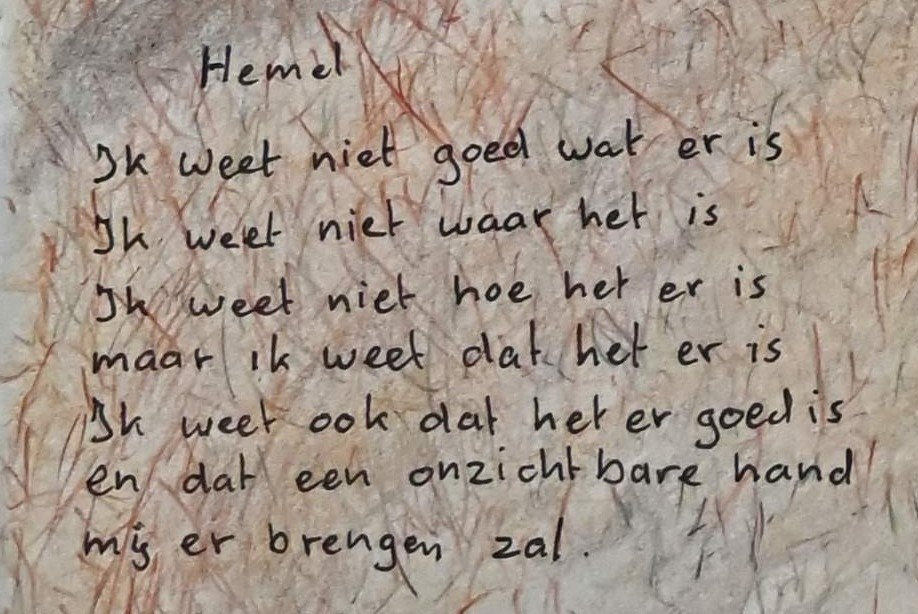 Hemel
Ik weet niet goed wat er is
Ik weet niet waar het is
Ik weet niet hoe het er is
maar ik weet dat het er is
Ik weet ook dat het er goed is
en dat een onzichtbare hand
mij er brengen zal.